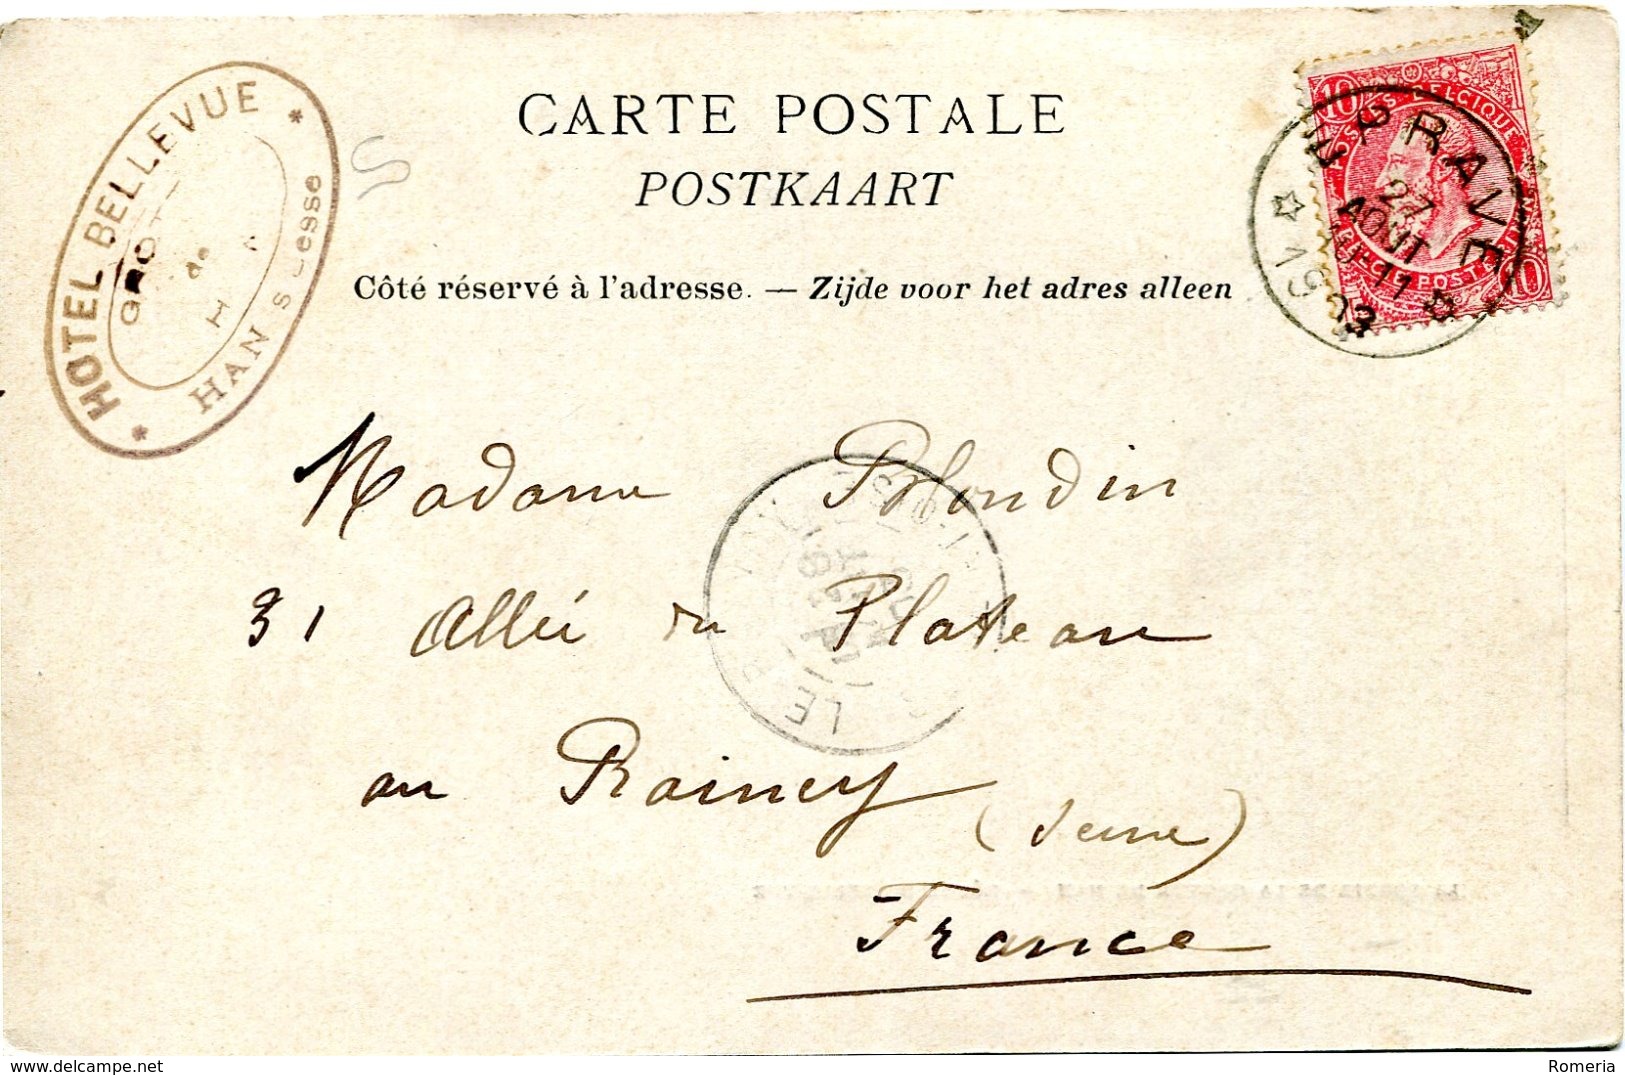 CARTE POSTALE
POSTKAART
Côté réservé à l'adresse. — Zijde voor het adres alleen
HOTEL BELLEVUE
HAN s Lesse
10 POSTES BELGIQUE 10
EPRAVE
27
AOUT
10-11
Madame Blondin
31 Allée du Plateau
au Raincy
(Seine)
France
Romeria